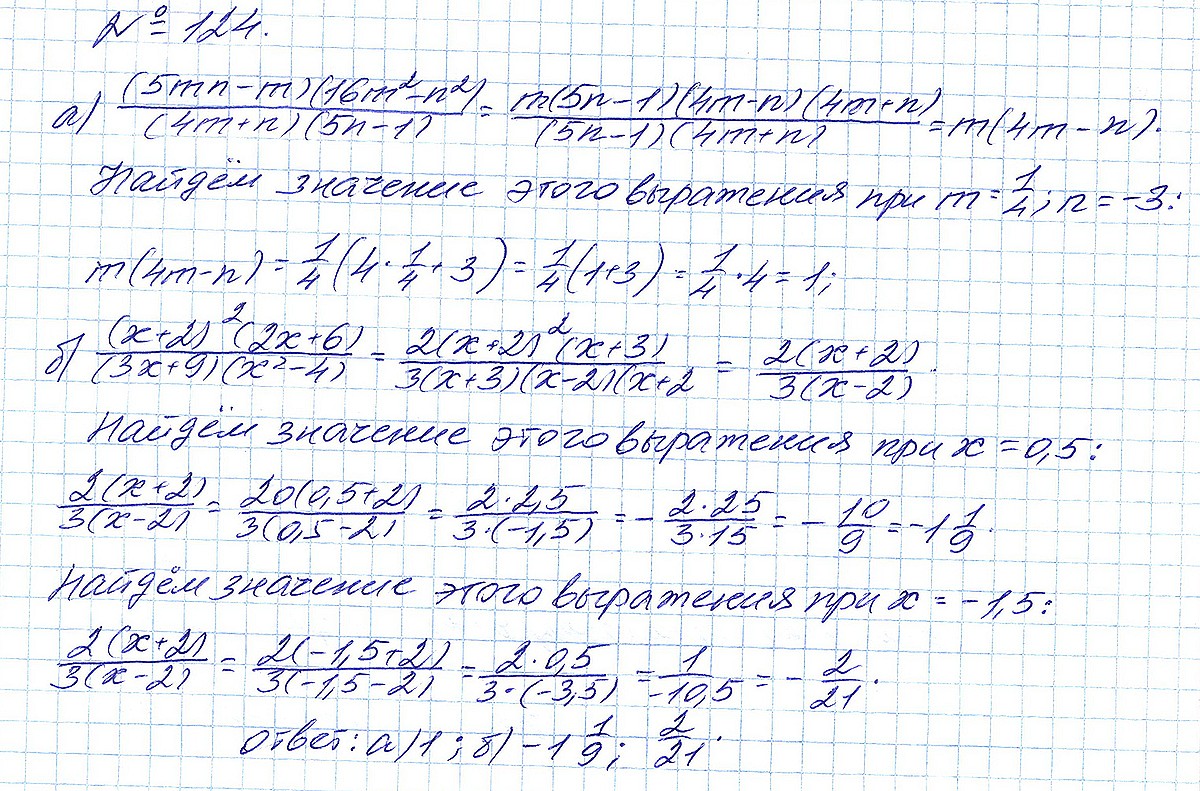 № 124.
а) (5mn-m)(16m²-n²)/(4m+n)(5n-1) = m(5n-1)(4m-n)(4m+n)/(5n-1)(4m+n) = m(4m-n).
Найдём значение этого выражения при m = 1/4; n = -3:
m(4m-n) = 1/4(4·1/4+3) = 1/4(1+3) = 1/4·4 = 1;
б) (x+2)²(2x+6)/(3x+9)(x²-4) = 2(x+2)²(x+3)/3(x+3)(x-2)(x+2 = 2(x+2)/3(x-2).
Найдём значение этого выражения при x = 0,5:
2(x+2)/3(x-2) = 20(0,5+2)/3(0,5-2) = 2·2,5/3·(-1,5) = -2·25/3·15 = -10/9 = -1 1/9.
Найдём значение этого выражения при x = -1,5:
2(x+2)/3(x-2) = 2(-1,5+2)/3(-1,5-2) = 2·0,5/3·(-3,5) = 1/-10,5 = -2/21.
Ответ: а) 1; б) -1 1/9; 2/21.